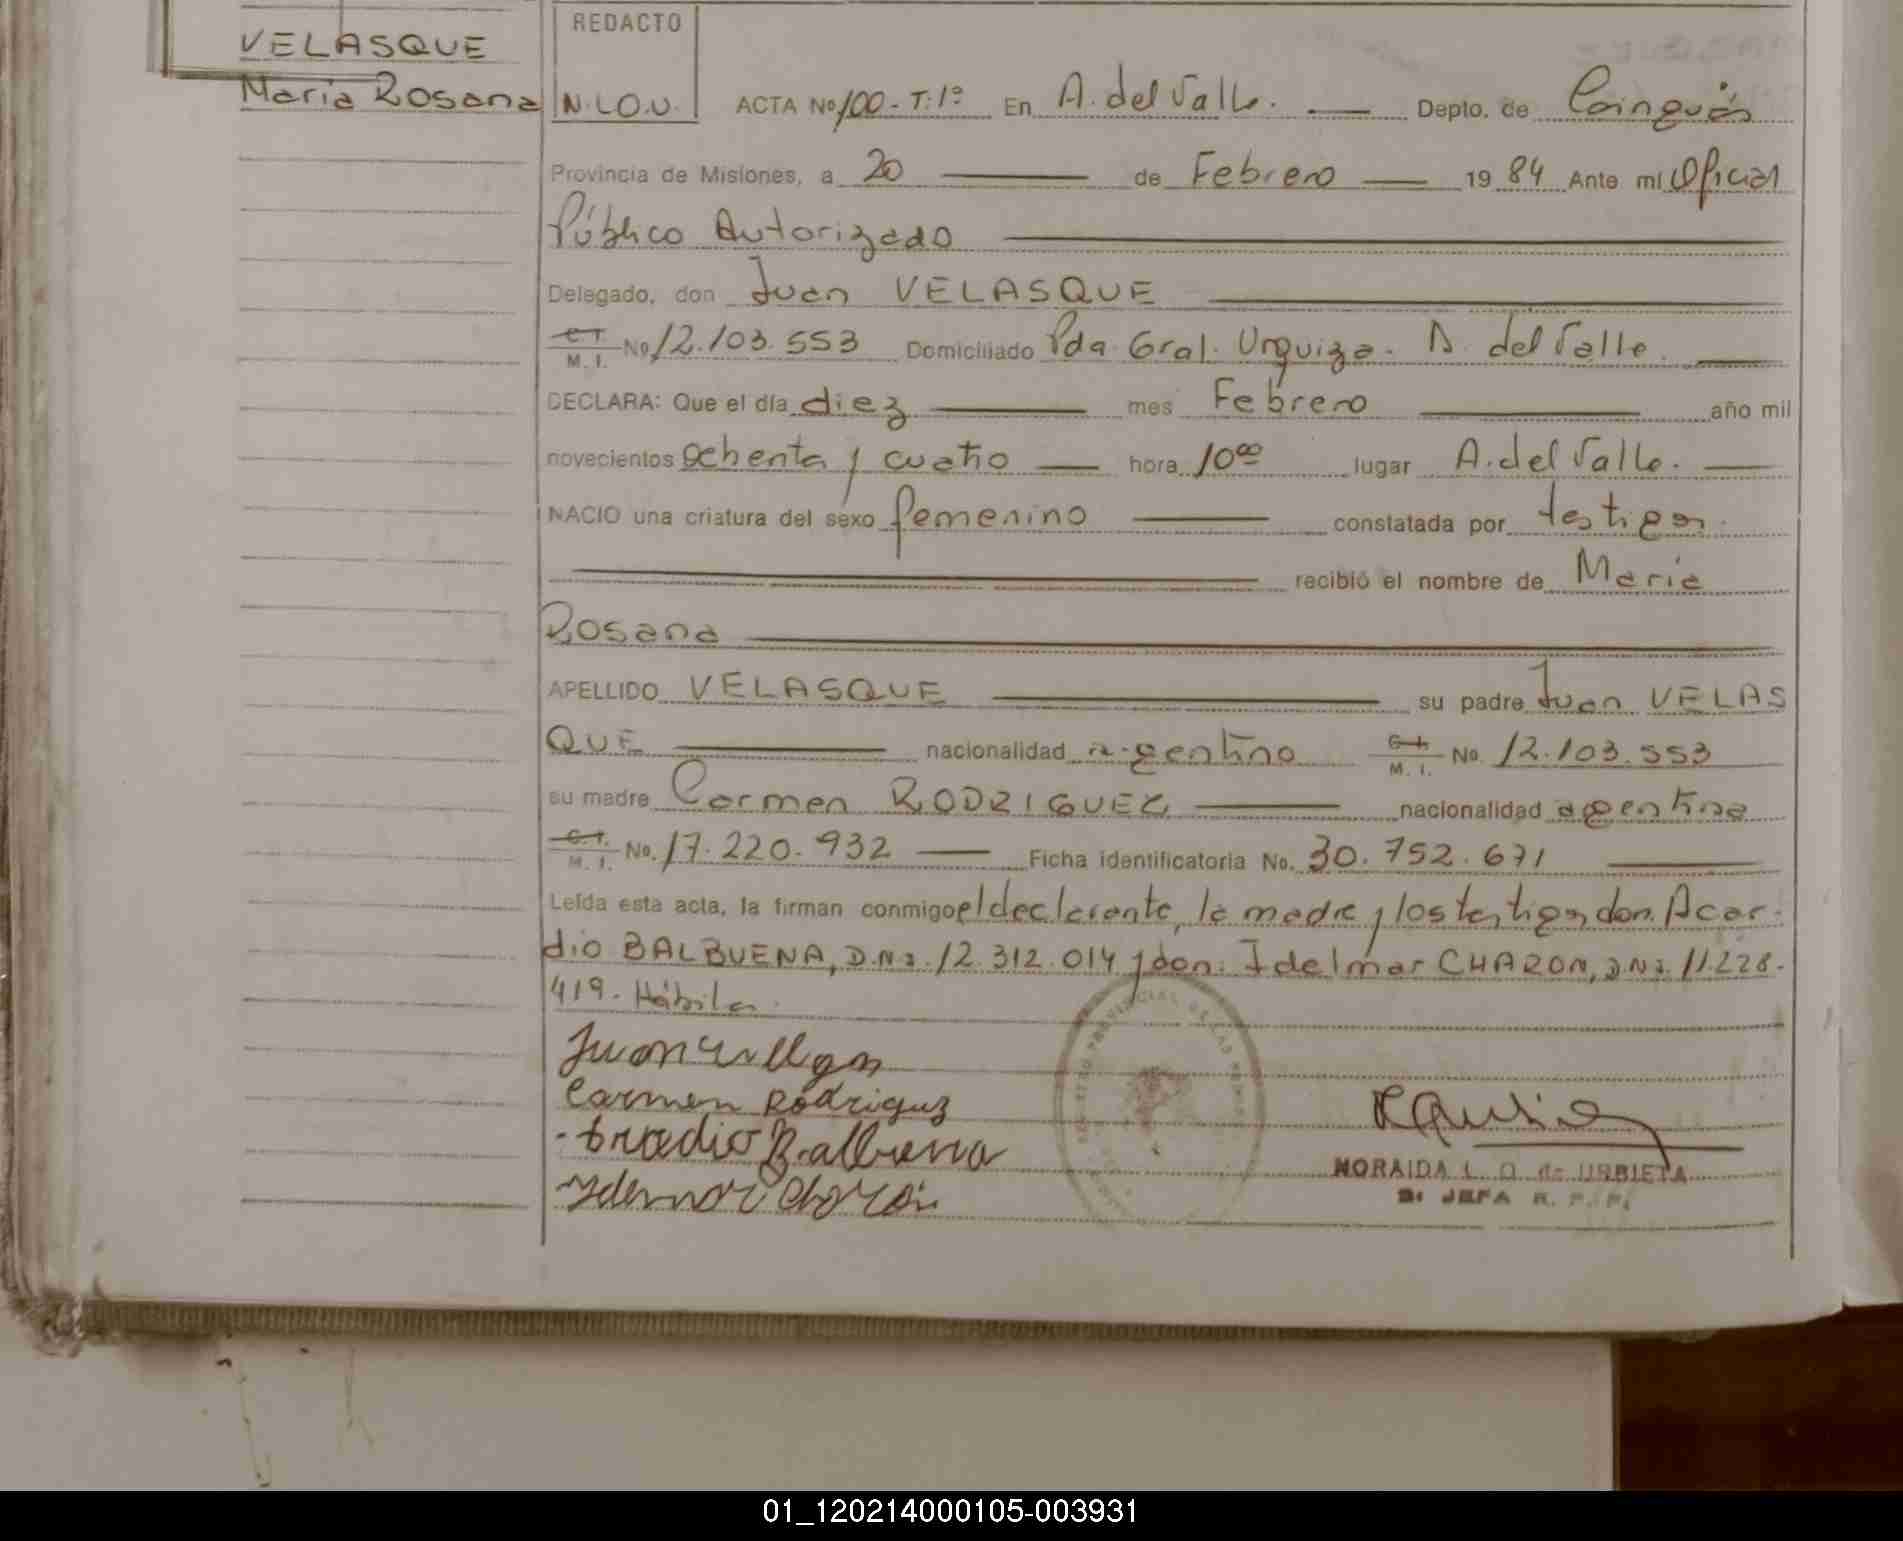 VELASQUE
Maria Rosana
REDACTO
N.L.O.U.
ACTA No 100 - T: 1º En A. del Valle. Depto. de Cainguás
Provincia de Misiones, a 20 de Febrero 1984 Ante mi Oficial
Público Autorizado
Delegado, don Juan VELASQUE
C.I. M.I. No 12.103.553 Domiciliado Pda. Gral. Urquiza. A. del Valle.
DECLARA: Que el día diez mes Febrero año mil
novecientos ochenta y cuatro hora 10ºº lugar A. del Valle.
NACIO una criatura del sexo femenino constatada por testigos.
recibió el nombre de Maria
Rosana
APELLIDO VELASQUE su padre Juan VELAS
QUE nacionalidad argentino C.I. M.I. No. 12.103.553
su madre Carmen RODRIGUEZ nacionalidad argentina
C.I. M.I. No. 17.220.932 Ficha identificatoria No. 30.752.671
Leída esta acta, la firman conmigo el declarante, la madre y los testigos don. Acar-
dio BALBUENA, D.N.I. 12.312.014 y don. Idelmar CHARON, D.N.I. 11.228.
419. Hábiles.
Juan
Carmen Rodriguz
Balbuena
NORAIDA L. O. de URBIETA
JEFA R. P. P.
01_120214000105-003931